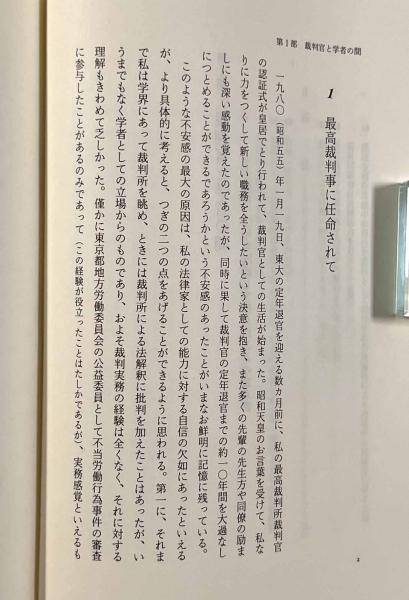 第1部　裁判官と学者の間
1　最高裁判事に任命されて
一九八〇（昭和五五）年一月一九日、東大の定年退官を迎える数カ月前に、私の最高裁判所裁判官
の認証式が皇居でとり行われて、裁判官としての生活が始まった。昭和天皇のお言葉を受けて、私な
りに力をつくして新しい職務を全うしたいという決意を抱き、また多くの先輩の先生方や同僚の励ま
しにも深い感動を覚えたのであったが、同時に果して裁判官の定年退官までの約一〇年間を大過なし
につとめることができるであろうかという不安感のあったことがいまなお鮮明に記憶に残っている。
このような不安感の最大の原因は、私の法律家としての能力に対する自信の欠如にあったといえる
が、より具体的に考えると、つぎの二つの点をあげることができるように思われる。第一に、それま
で私は学界にあって裁判所を眺め、ときには裁判所による法解釈に批判を加えたことはあったが、い
うまでもなく学者としての立場からのものであり、およそ裁判実務の経験は全くなく、それに対する
理解もきわめて乏しかった。僅かに東京都地方労働委員会の公益委員として不当労働行為事件の審査
に参与したことがあるのみであって（この経験が役立ったことはたしかであるが）、実務感覚といえるも
2